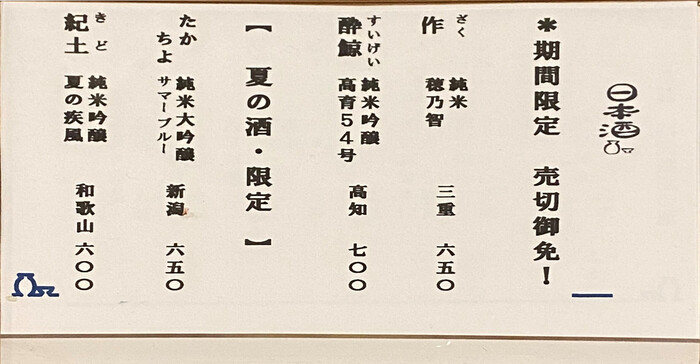 日本酒
＊期間限定　売切御免！
ざく
作　純米　三重　六五〇
穂乃智
すいげい
酔鯨　純米吟醸　高知　七〇〇
高育５４号
【　夏の酒・限定　】
たか　純米大吟醸　新潟　六五〇
ちよ　サマーブルー
きど
紀土　純米吟醸　和歌山　六〇〇
夏の疾風